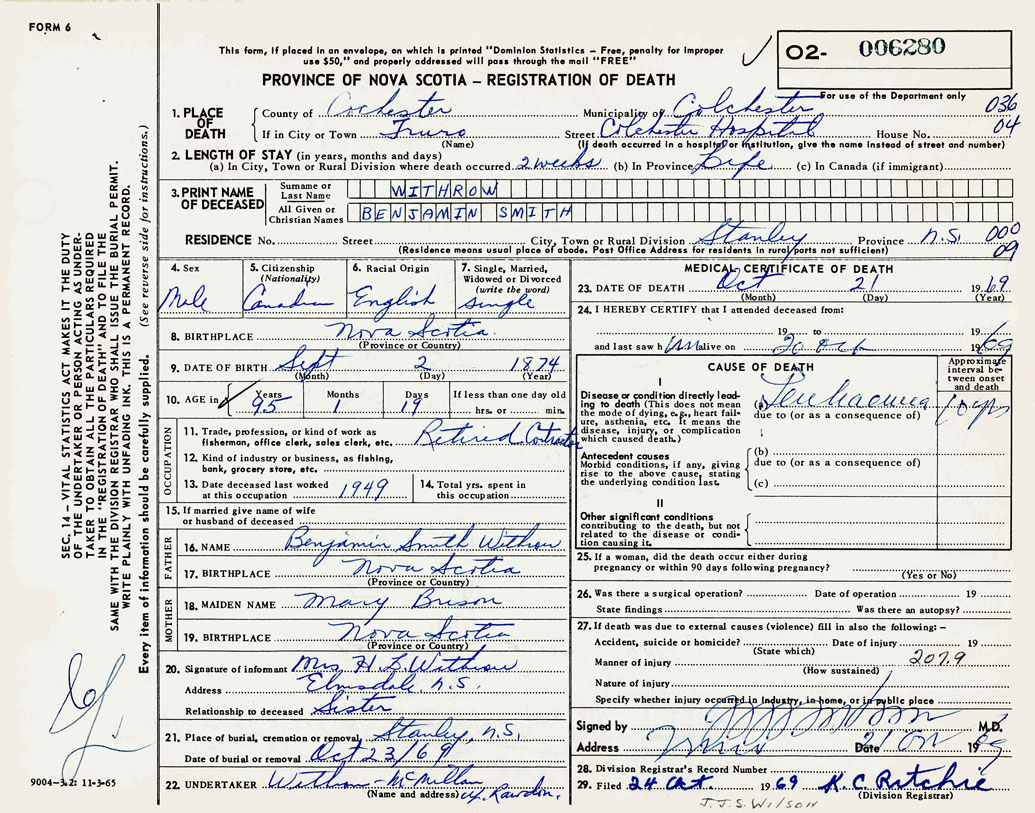 FORM 6
This form, if placed in an envelope, on which is printed "Dominion Statistics – Free, penalty for improper
use $50," and properly addressed will pass through the mail "FREE"
PROVINCE OF NOVA SCOTIA – REGISTRATION OF DEATH
O2- 006280
For use of the Department only
036
04
1. PLACE OF DEATH
County of Cochester Municipality of Colchester
If in City or Town Truro Street Colchester Hospital House No.
(Name) (If death occurred in a hospital or institution, give the name instead of street and number)
2. LENGTH OF STAY (in years, months and days)
(a) In City, Town or Rural Division where death occurred 2 weeks (b) In Province Life (c) In Canada (if immigrant)
3. PRINT NAME OF DECEASED
Surname or Last Name WITHROW
All Given or Christian Names BENJAMIN SMITH
RESIDENCE No. Street City, Town or Rural Division Stanley Province N.S. 000
09
(Residence means usual place of abode. Post Office Address for residents in rural parts not sufficient)
4. Sex
Male
5. Citizenship
(Nationality)
Canadian
6. Racial Origin
English
7. Single, Married,
Widowed or Divorced
(write the word)
Single
8. BIRTHPLACE Nova Scotia
(Province or Country)
9. DATE OF BIRTH Sept 2 1874
(Month) (Day) (Year)
10. AGE in Years Months Days If less than one day old
95 1 19 hrs. or min.
OCCUPATION
11. Trade, profession, or kind of work as
fisherman, office clerk, sales clerk, etc. Retired Contractor
12. Kind of industry or business, as fishing,
bank, grocery store, etc.
13. Date deceased last worked
at this occupation 1949
14. Total yrs. spent in
this occupation
15. If married give name of wife
or husband of deceased
FATHER
16. NAME Benjamin Smith Withrow
17. BIRTHPLACE Nova Scotia
(Province or Country)
MOTHER
18. MAIDEN NAME Mary Brison
19. BIRTHPLACE Nova Scotia
(Province or Country)
20. Signature of informant Mrs H L Withrow
Address Elmsdale, N.S.
Relationship to deceased Sister
21. Place of burial, cremation or removal Stanley, N.S.
Date of burial or removal Oct 23/69
22. UNDERTAKER Withrow-McMillan
(Name and address) Rawdon.
MEDICAL CERTIFICATE OF DEATH
23. DATE OF DEATH Oct 21 1969
(Month) (Day) (Year)
24. I HEREBY CERTIFY that I attended deceased from:
19 to 19
and last saw him alive on 20 Oct 1969
CAUSE OF DEATH
Approximate
interval be-
tween onset
and death
I
Disease or condition directly lead-
ing to death (This does not mean
the mode of dying, e.g., heart fail-
ure, asthenia, etc. It means the
disease, injury, or complication
which caused death.)
(a)
due to (or as a consequence of)
Antecedent causes
Morbid conditions, if any, giving
rise to the above cause, stating
the underlying condition last.
(b)
due to (or as a consequence of)
(c)
II
Other significant conditions
contributing to the death, but not
related to the disease or condi-
tion causing it.
25. If a woman, did the death occur either during
pregnancy or within 90 days following pregnancy?
(Yes or No)
26. Was there a surgical operation? Date of operation 19
State findings Was there an autopsy?
27. If death was due to external causes (violence) fill in also the following: –
Accident, suicide or homicide? Date of injury 19
(State which)
Manner of injury 207.9
(How sustained)
Nature of injury
Specify whether injury occurred in Industry, in home, or in public place
Signed by M.D.
Address Truro Date 21 Oct 1969
28. Division Registrar's Record Number
29. Filed 24 Oct. 1969 K. C. Ritchie
(Division Registrar)
J.J.S. WILSON
SEC. 14 – VITAL STATISTICS ACT MAKES IT THE DUTY
OF THE UNDERTAKER OR PERSON ACTING AS UNDER-
TAKER TO OBTAIN ALL THE PARTICULARS REQUIRED
IN THE "REGISTRATION OF DEATH" AND TO FILE THE
SAME WITH THE DIVISION REGISTRAR WHO SHALL ISSUE THE BURIAL PERMIT.
WRITE PLAINLY WITH UNFADING INK. THIS IS A PERMANENT RECORD.
Every item of information should be carefully supplied. (See reverse side for instructions.)
9004-3.2: 11-3-65